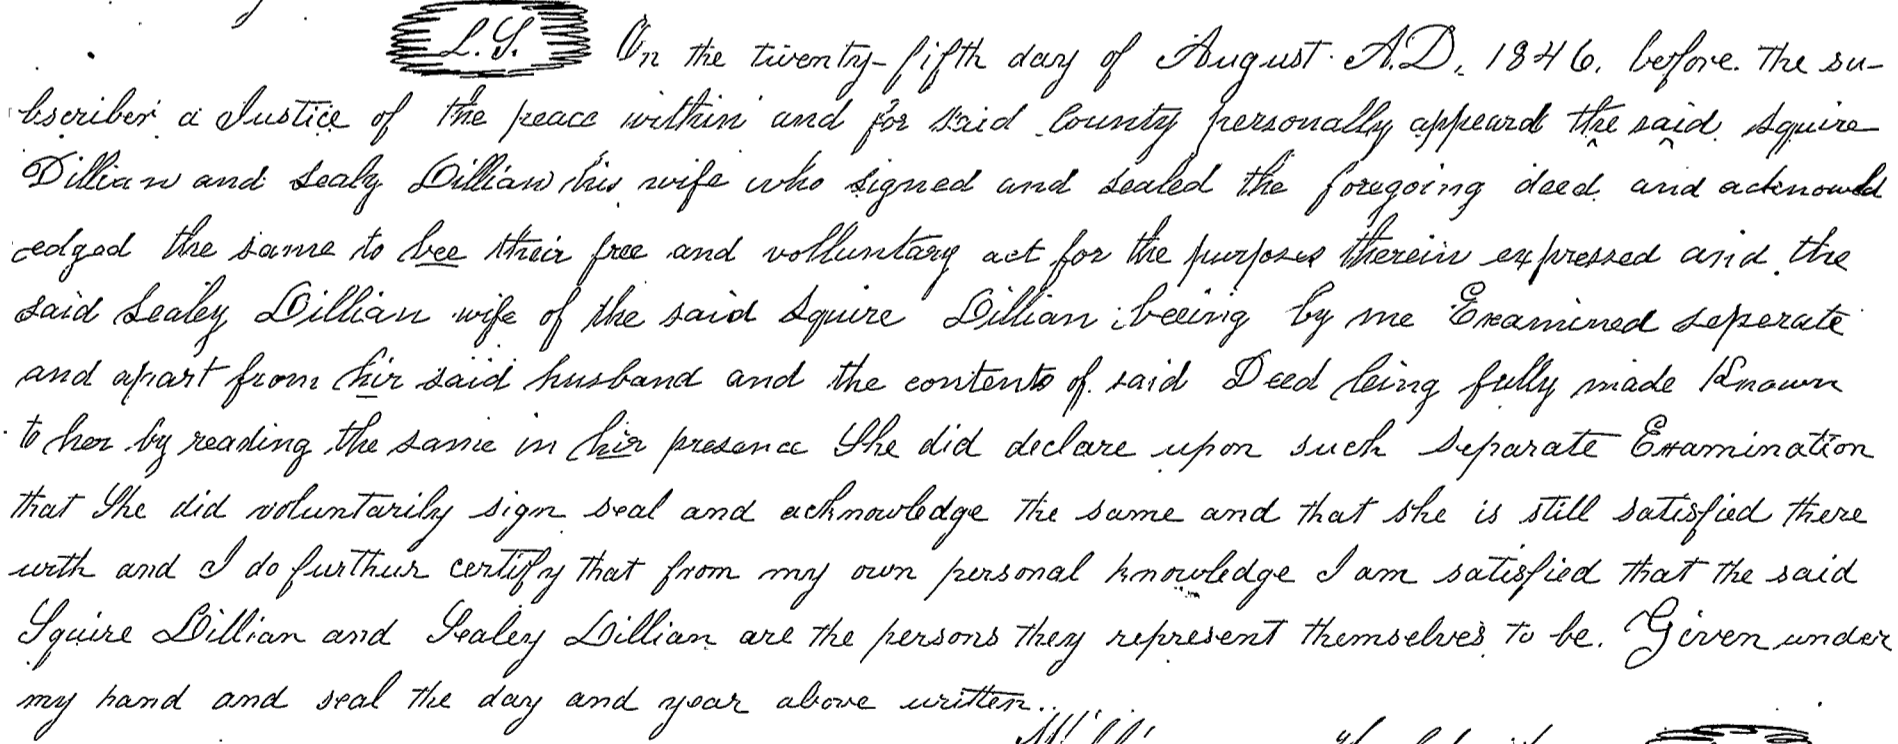 L.S. On the twenty-fifth day of August A.D. 1846. before the su-
bscriber a Justice of the peace within and for said County personally appeard the said Squire
Dillian and Sealy Dillian his wife who signed and sealed the foregoing deed and acknowld
edged the same to bee their free and volluntary act for the purposes therein expressed and the
said Sealey Dillian wife of the said Squire Dillian beeing by me Examined seperate
and apart from hir said husband and the contents of said Deed being fully made Known
to her by reading the same in hir presence She did declare upon such Separate Examination
that She did voluntarily sign seal and acknowledge the same and that she is still satisfied there
with and I do furthur certify that from my own personal knowledge I am satisfied that the said
Squire Dillian and Sealey Dillian are the persons they represent themselves to be. Given under
my hand and seal the day and year above written..